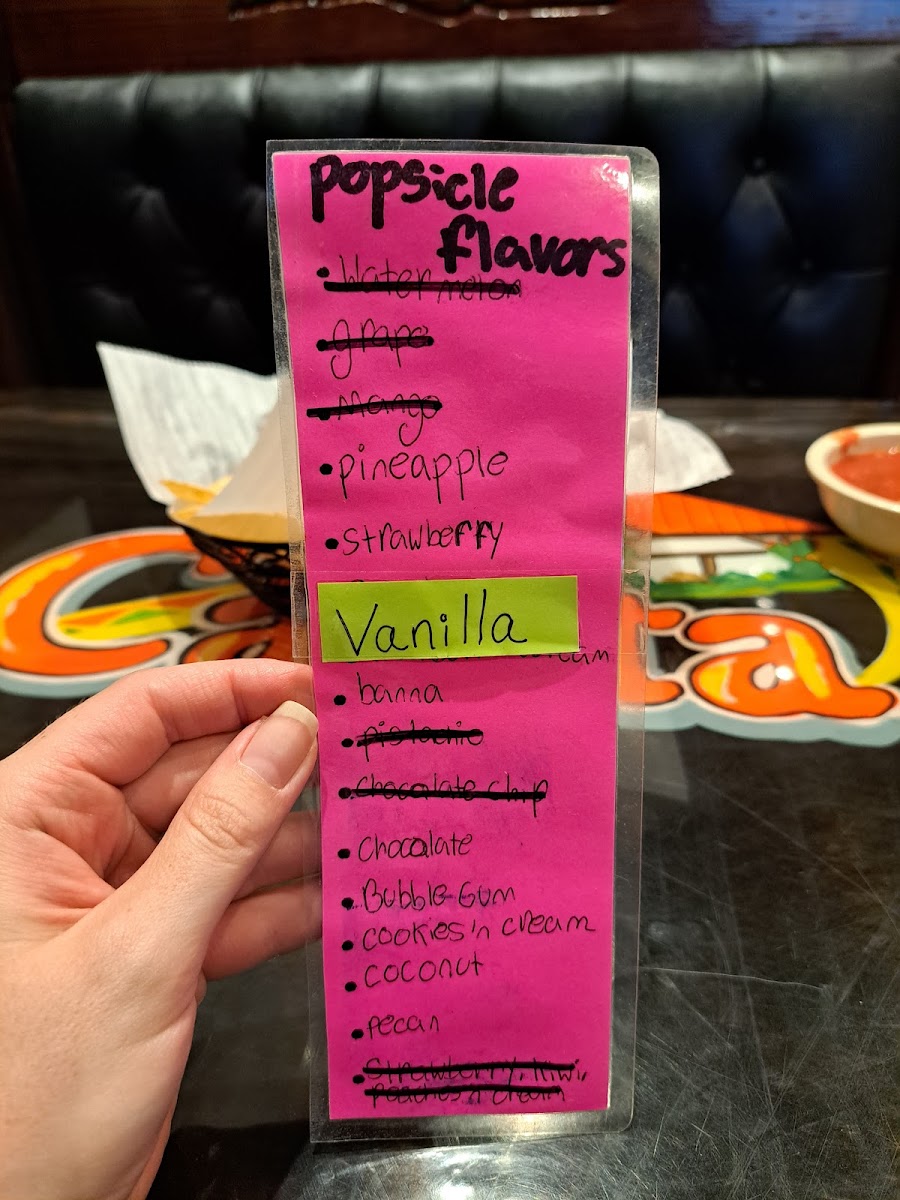 popsicle
flavors
• Watermelon
• grape
• Mango
• pineapple
• strawberry
Vanilla
• banna
• pistachio
• Chocolate chip
• chocolate
• Bubble Gum
• cookies'n cream
• coconut
• pecan
• Strawberry, kiwi,
peaches n cream